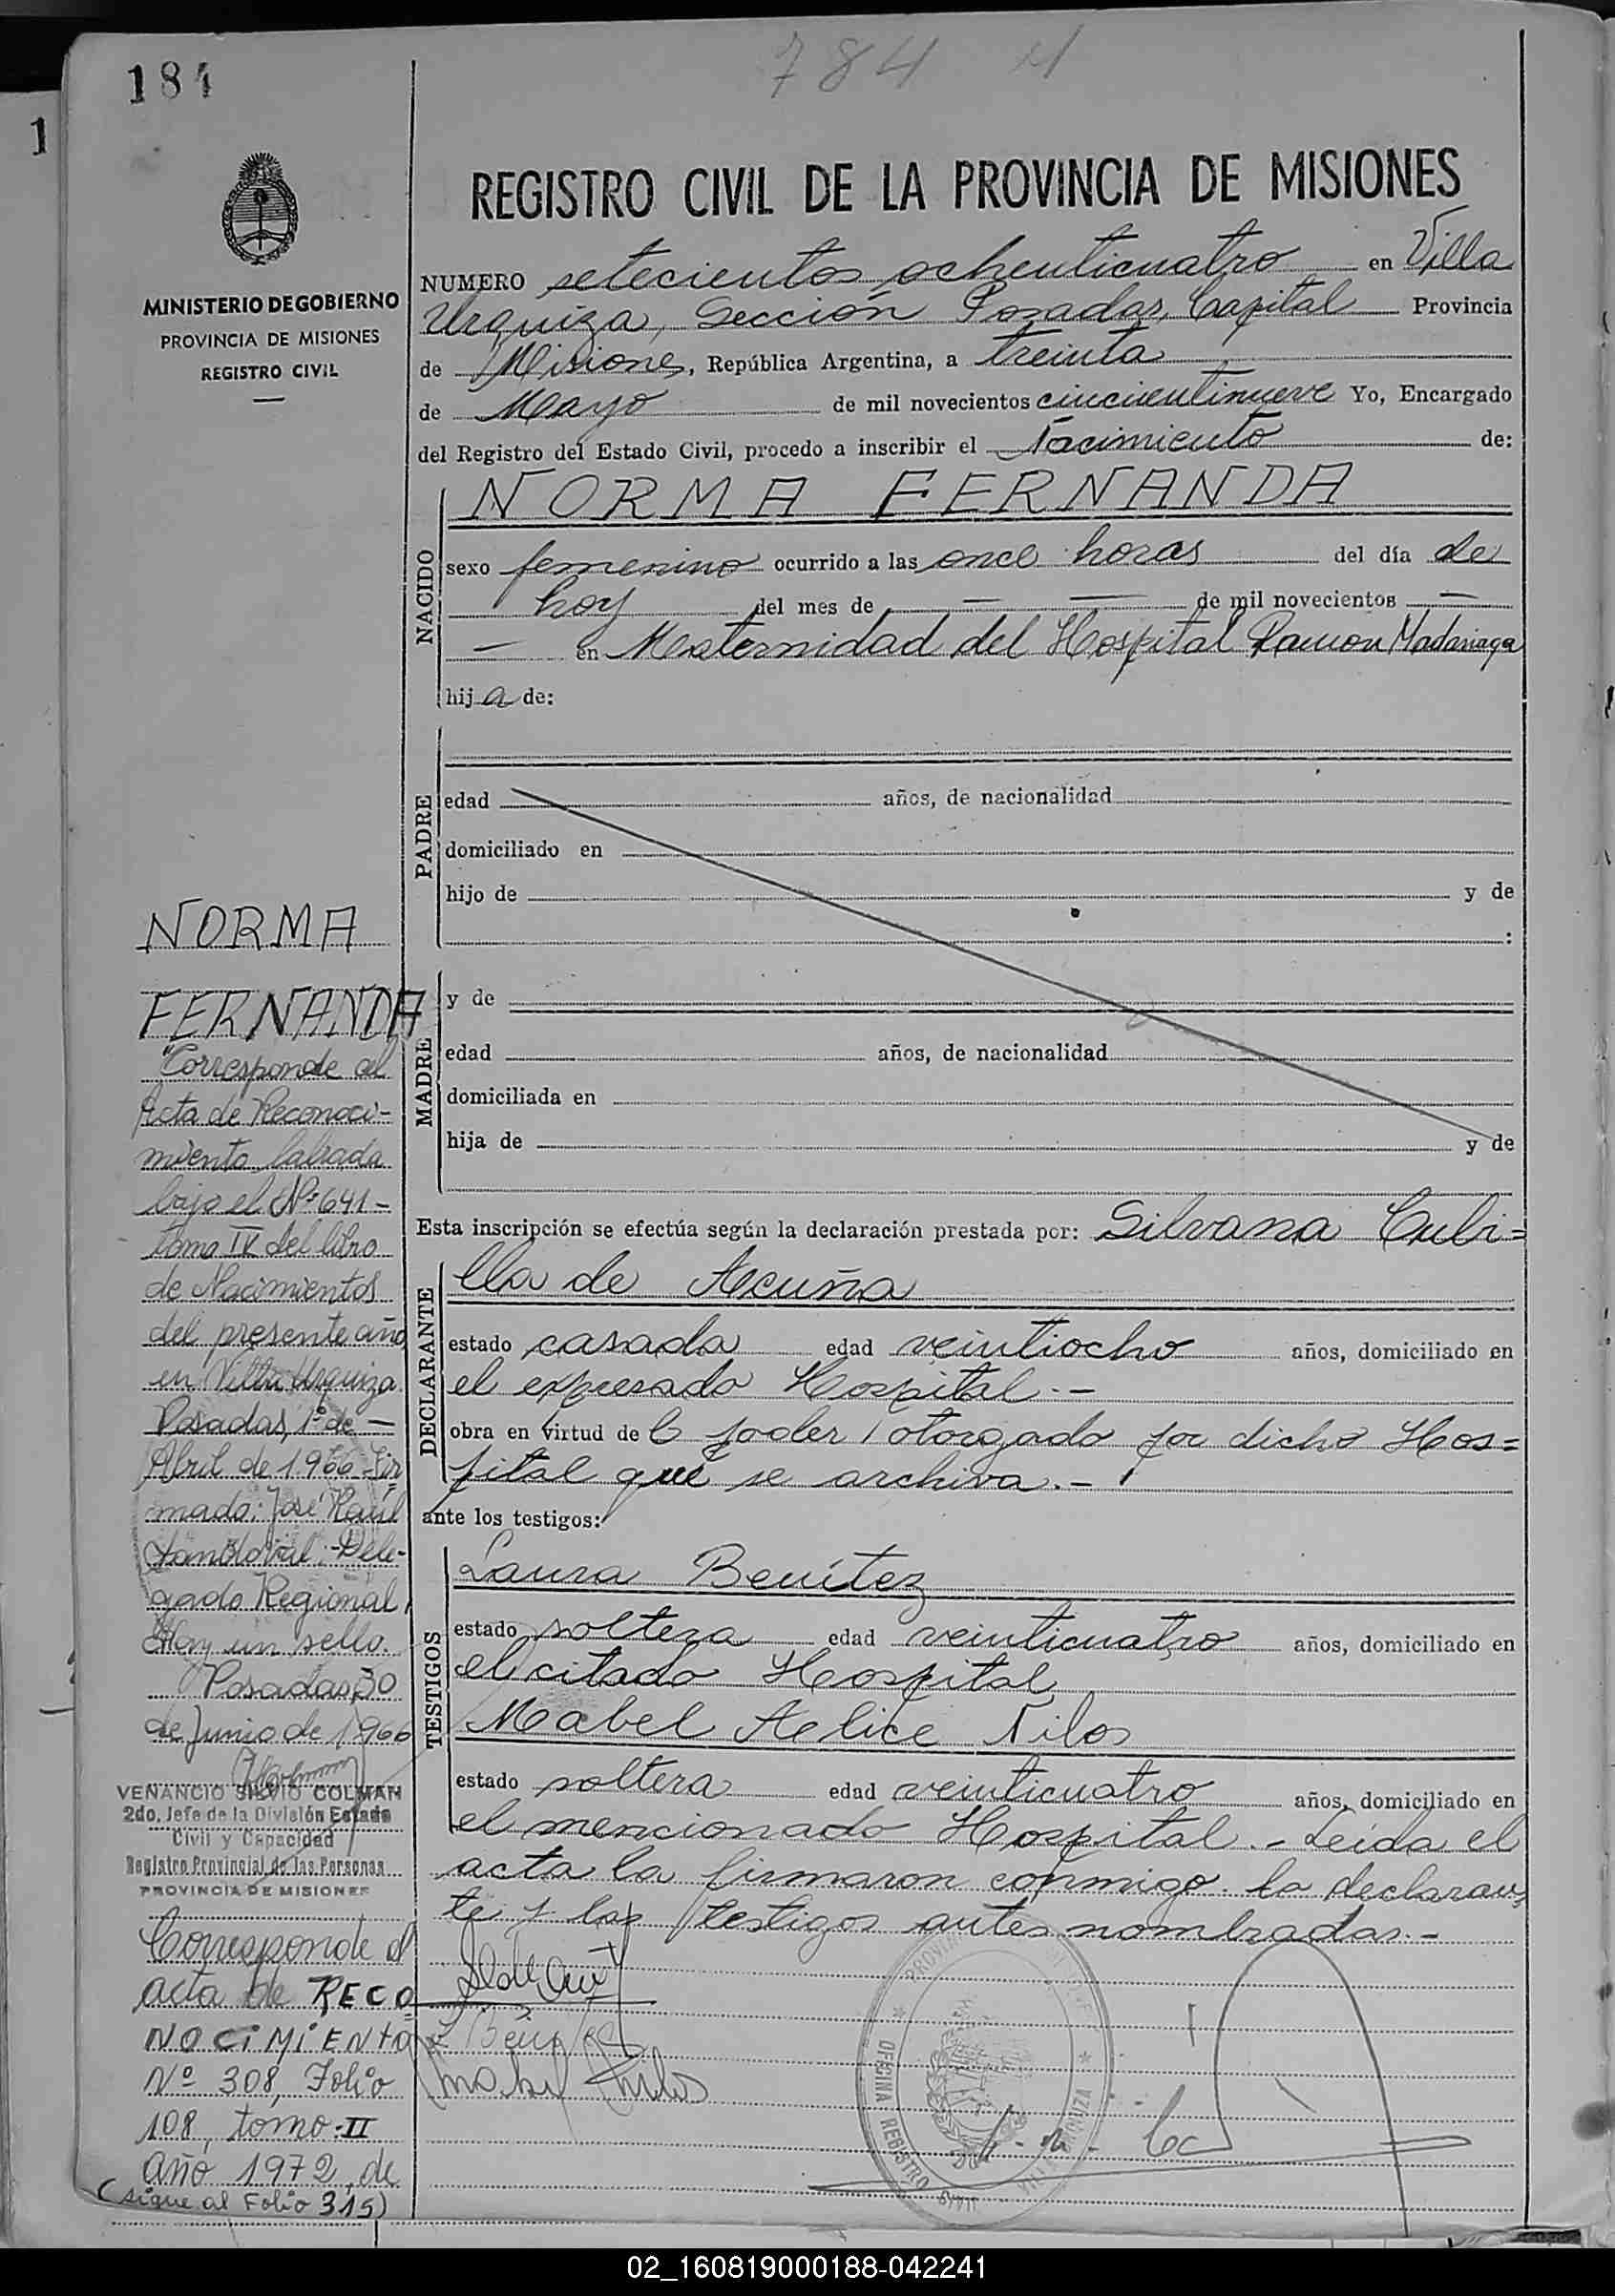 784
184
1
REGISTRO CIVIL DE LA PROVINCIA DE MISIONES
MINISTERIO DE GOBIERNO
PROVINCIA DE MISIONES
REGISTRO CIVIL
NUMERO setecientos ochenticuatro en Villa
Urquiza, Sección Posadas, Capital Provincia
de Misiones, República Argentina, a treinta
de Mayo de mil novecientos cincuentinueve Yo, Encargado
del Registro del Estado Civil, procedo a inscribir el Nacimiento de:
NACIDO
NORMA FERNANDA
sexo femenino ocurrido a las once horas del día de
hoy del mes de — — de mil novecientos —
— en Maternidad del Hospital Ramon Madariaga
hija de:
PADRE
edad años, de nacionalidad
domiciliado en
hijo de y de
:
MADRE
y de
edad años, de nacionalidad
domiciliada en
hija de y de
Esta inscripción se efectúa según la declaración prestada por: Silvana Cubi=
DECLARANTE
lla de Acuña
estado casada edad veintiocho años, domiciliado en
el expresado Hospital.-
obra en virtud de l poder otorgado por dicho Hos=
pital que se archiva.-
ante los testigos:
TESTIGOS
Laura Benítez
estado soltera edad veinticuatro años, domiciliado en
el citado Hospital
Mabel Aelice Nilos
estado soltera edad veinticuatro años, domiciliado en
el mencionado Hospital.- Leída el
acta la firmaron conmigo la declaran
te y las testigos antes nombradas.-
OFICINA REGISTRO
NORMA
FERNANDA
"Corresponde al
Acta de Reconoci-
miento labrada
bajo el Nº 641-
tomo IV del libro
de Nacimientos
del presente año
en Villa Urquiza
Posadas, 1º de —
Abril de 1966-Fir
mado: José Raúl
Sandoval. Dele-
gado Regional,
Hay un sello.
Posadas, 30
de Junio de 1966
VENANCIO SILVIO COLMAN
2do. Jefe de la División Estado
Civil y Capacidad
Registro Provincial de las Personas
PROVINCIA DE MISIONES
Corresponde al
acta de RECO
NOCIMIENTO
Nº 308, Folio
108, tomo-II
año 1972, de
(sigue al Folio 315)
02_160819000188-042241